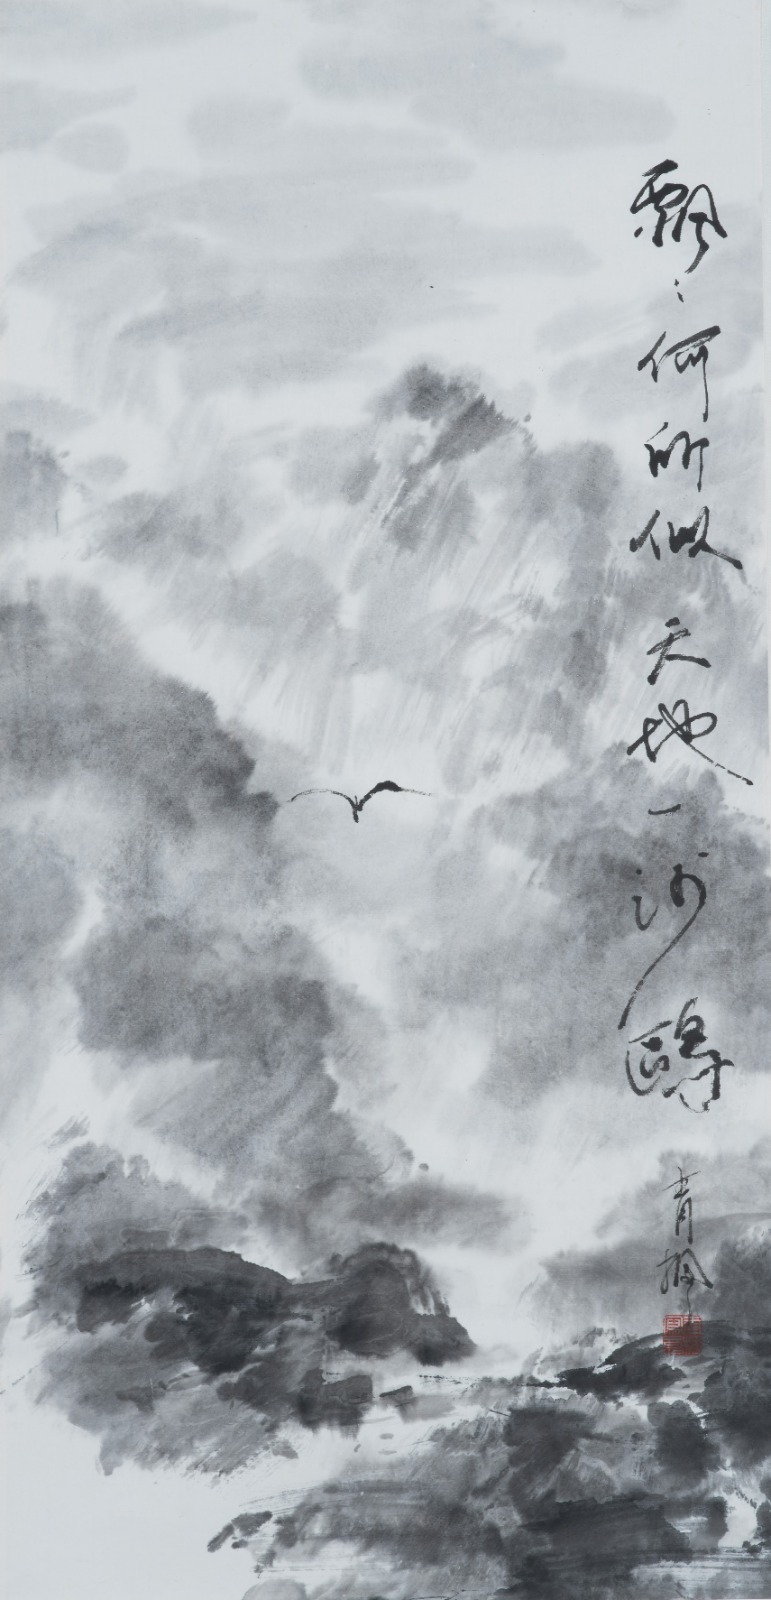 飘〻何所似天地一沙鸥
青枫